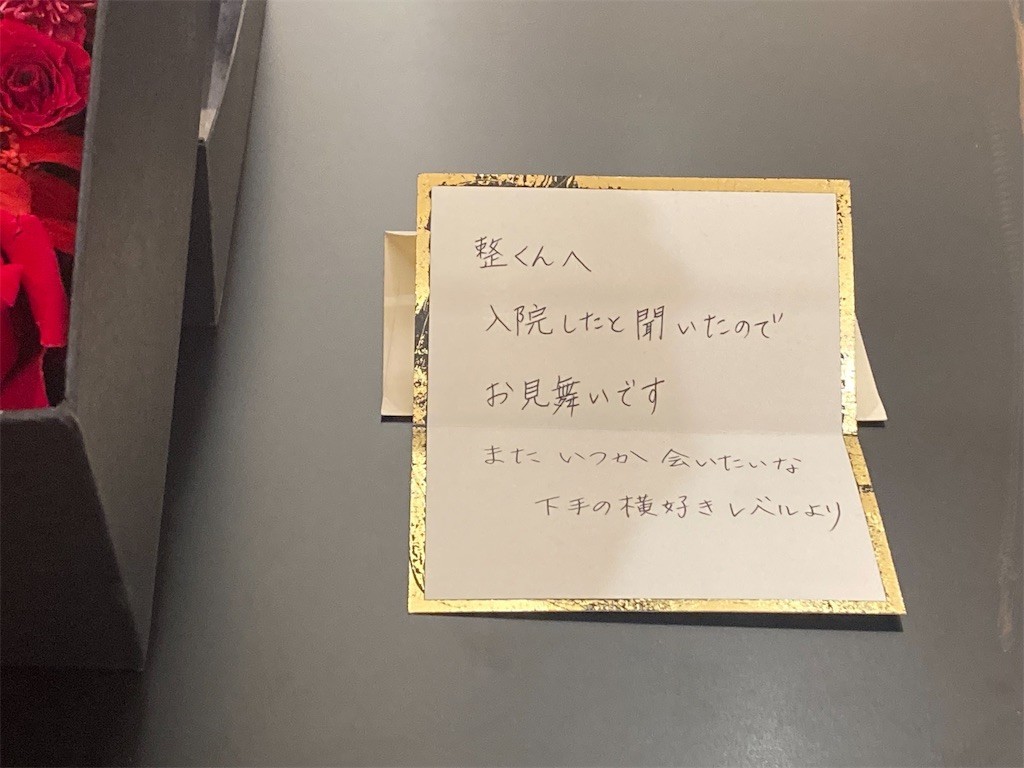 整くんへ
入院したと聞いたので
お見舞いです
またいつか会いたいな
下手の横好きレベルより